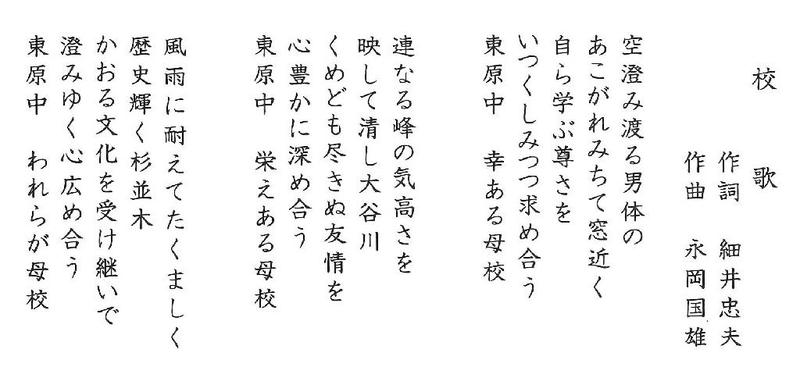 校歌
作詞　細井忠夫
作曲　永岡国雄
空澄み渡る男体の
あこがれみちて窓近く
自ら学ぶ尊さを
いつくしみつつ求め合う
東原中　幸ある母校
連なる峰の気高さを
映して清し大谷川
くめども尽きぬ友情を
心豊かに深め合う
東原中　栄えある母校
風雨に耐えてたくましく
歴史輝く杉並木
かおる文化を受け継いで
澄みゆく心広め合う
東原中　われらが母校